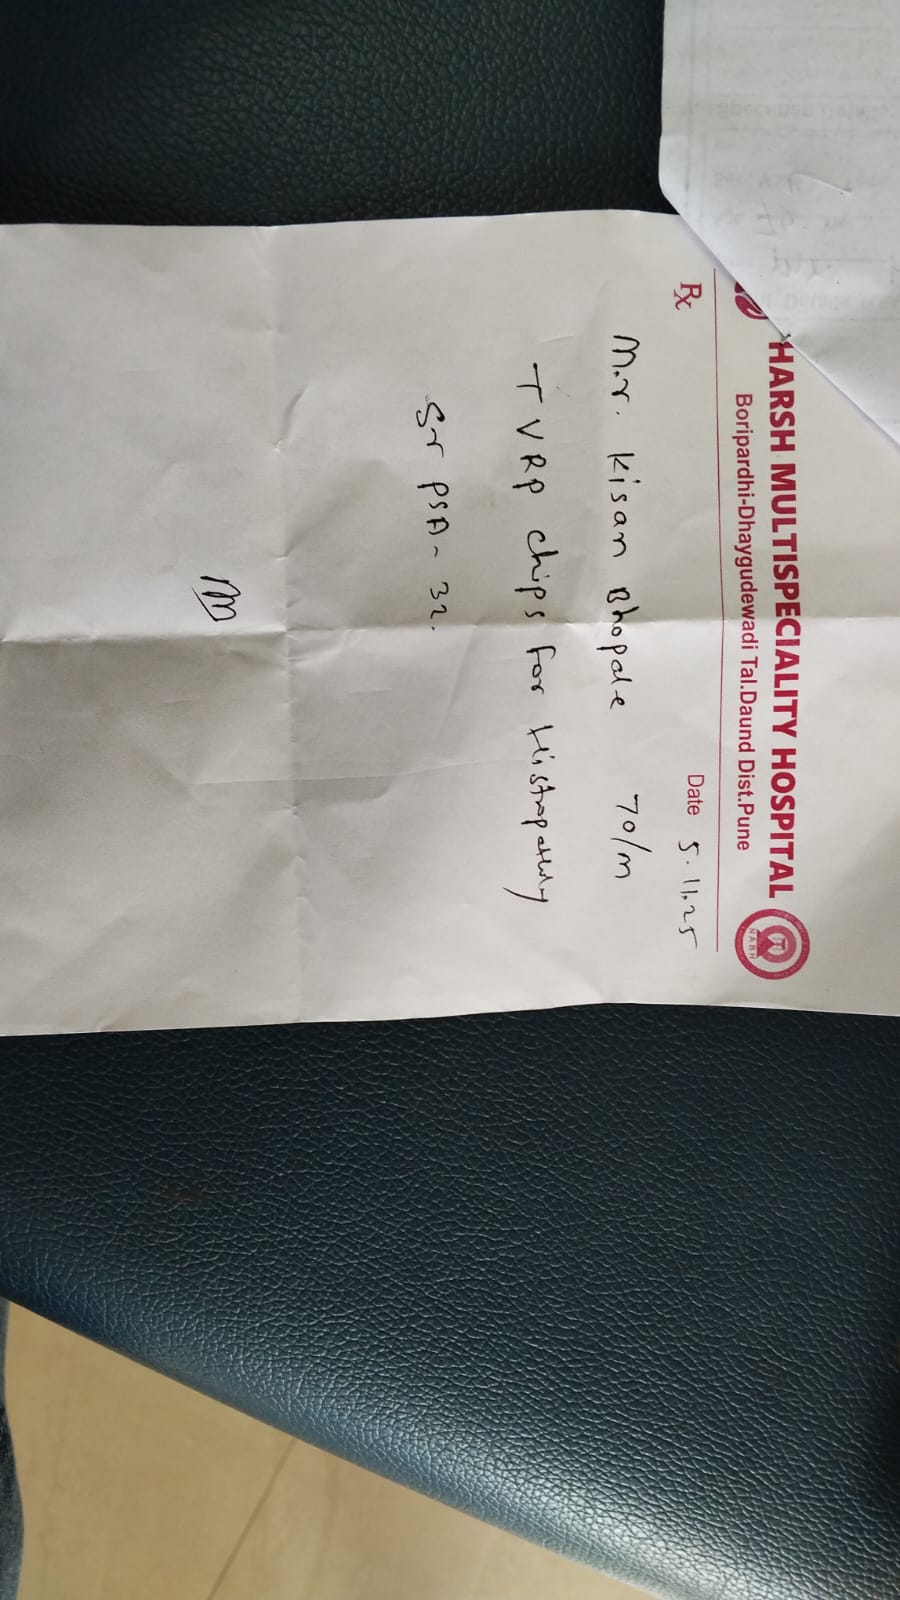 HARSH MULTISPECIALITY HOSPITAL
Boripardhi-Dhaygudewadi Tal.Daund Dist.Pune
NABH
Rx
Date 5.11.25
M.r. Kisan Bhopale 70/M
TVRP chips for Histropathly
Sr PSA - 32.